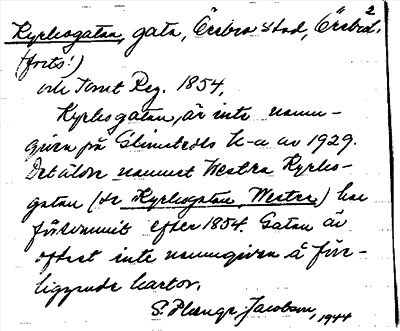 2
Kyrkogatan, gata, Örebro stad, Örebro l.
(forts.)
och Tomt Reg. 1854.
Kyrkogatan, är inte namn-
given på Elinstedts k-a av 1929.
Det äldre namnet Westra Kyrko-
gatan (se Kyrkogatan, Westra) har
försvunnit efter 1854. Gatan är
oftast inte namngiven å före-
liggande kartor.
S. Plænge Jacobson, 1944